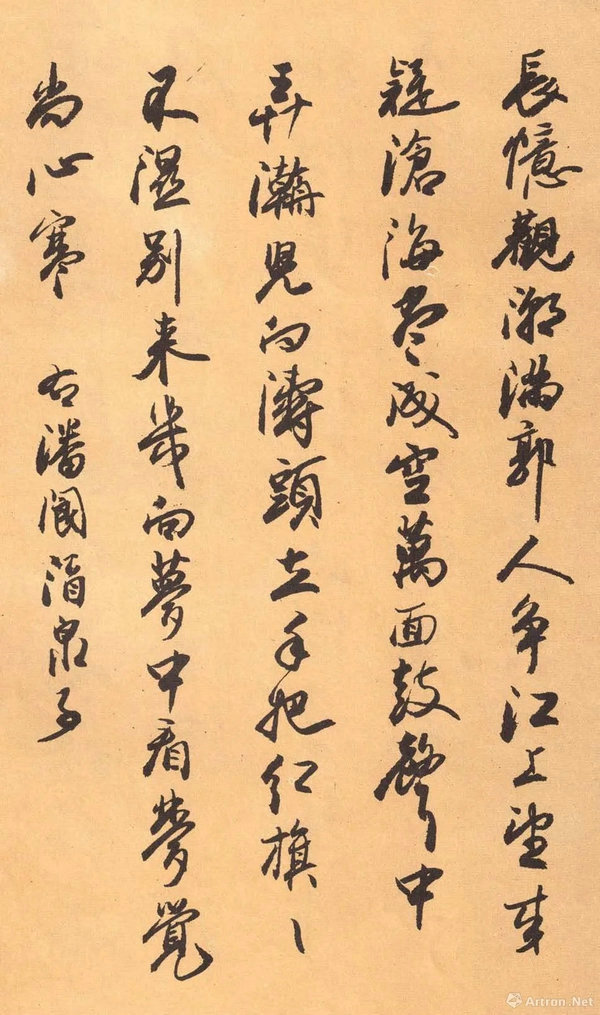 長憶觀潮滿郭人争江上望來
疑滄海盡成空萬面鼓聲中
弄濤兒向濤頭立手把紅旗〻
不濕别來幾向夢中看夢覺
尚心寒 右潘閬酒泉子
Artron.Net